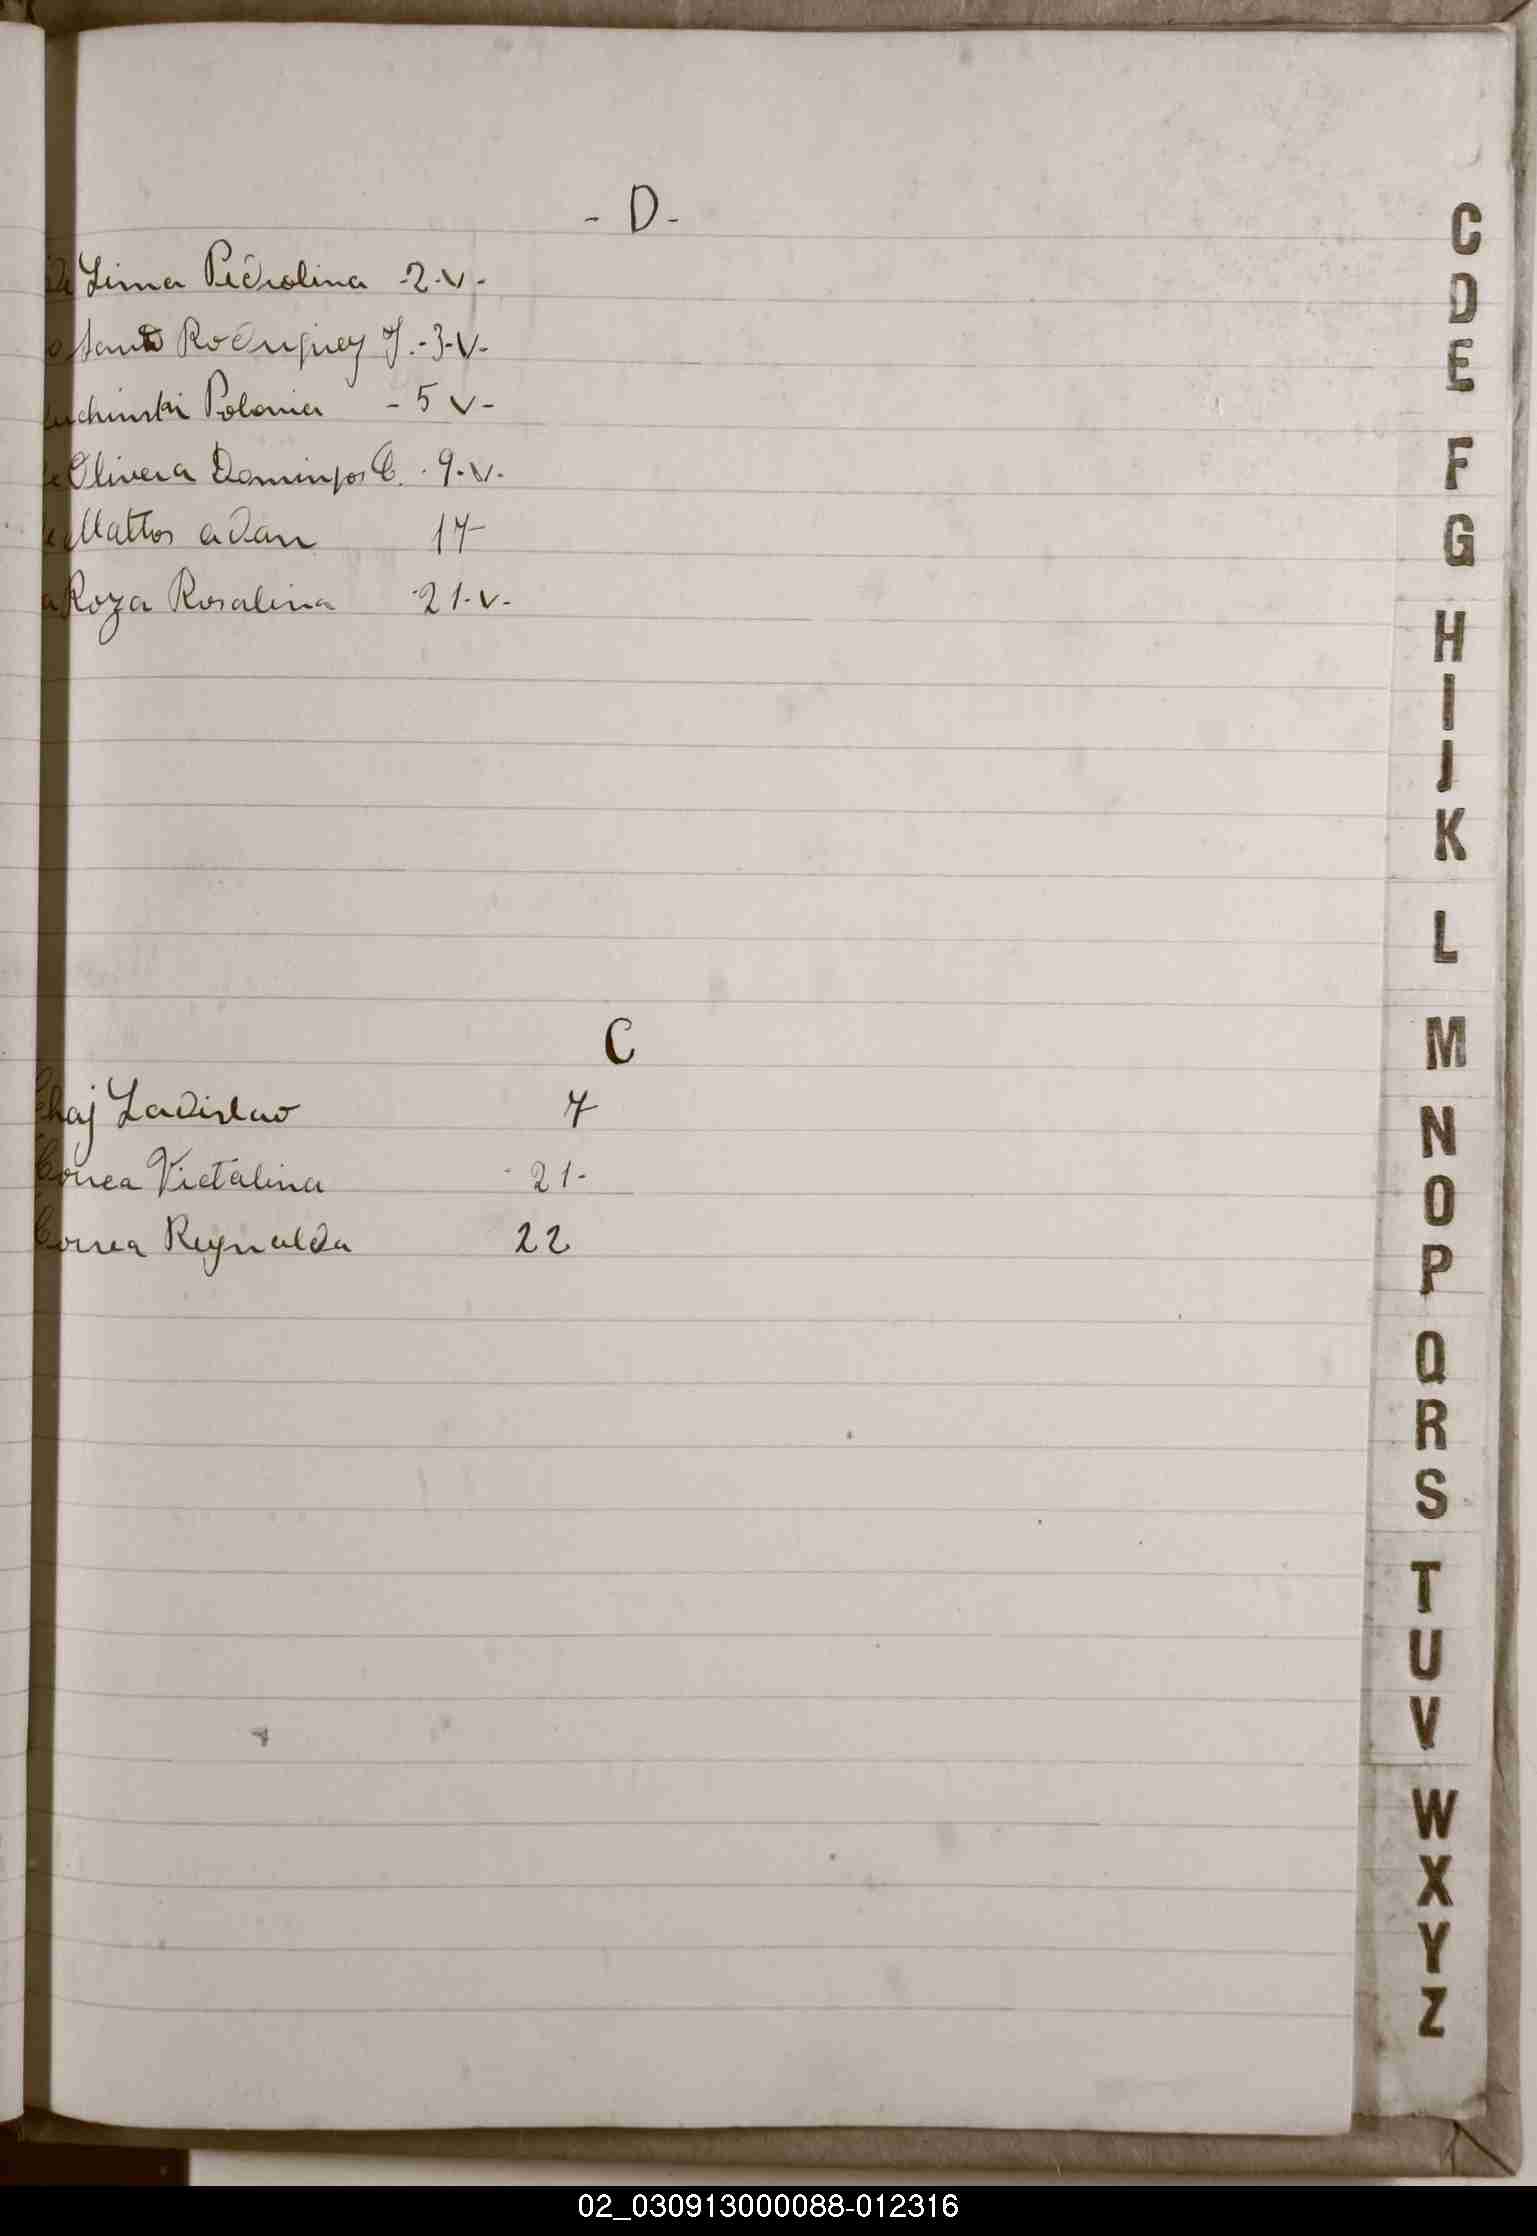 - D -
De Lima Pedrolina -2-v-
Santo Rodriguez J. -3-v-
Polonia - 5 v-
de Olivera Domingos C. -9-v-
de Mattos adan 17
a Roza Rosalina -21-v-
C
Chaj Ladislao 7
Correa Victalina -21-
Correa Reynalda 22
C
D
E
F
G
H
I
J
K
L
M
N
O
P
Q
R
S
T
U
V
W
X
Y
Z
02_030913000088-012316